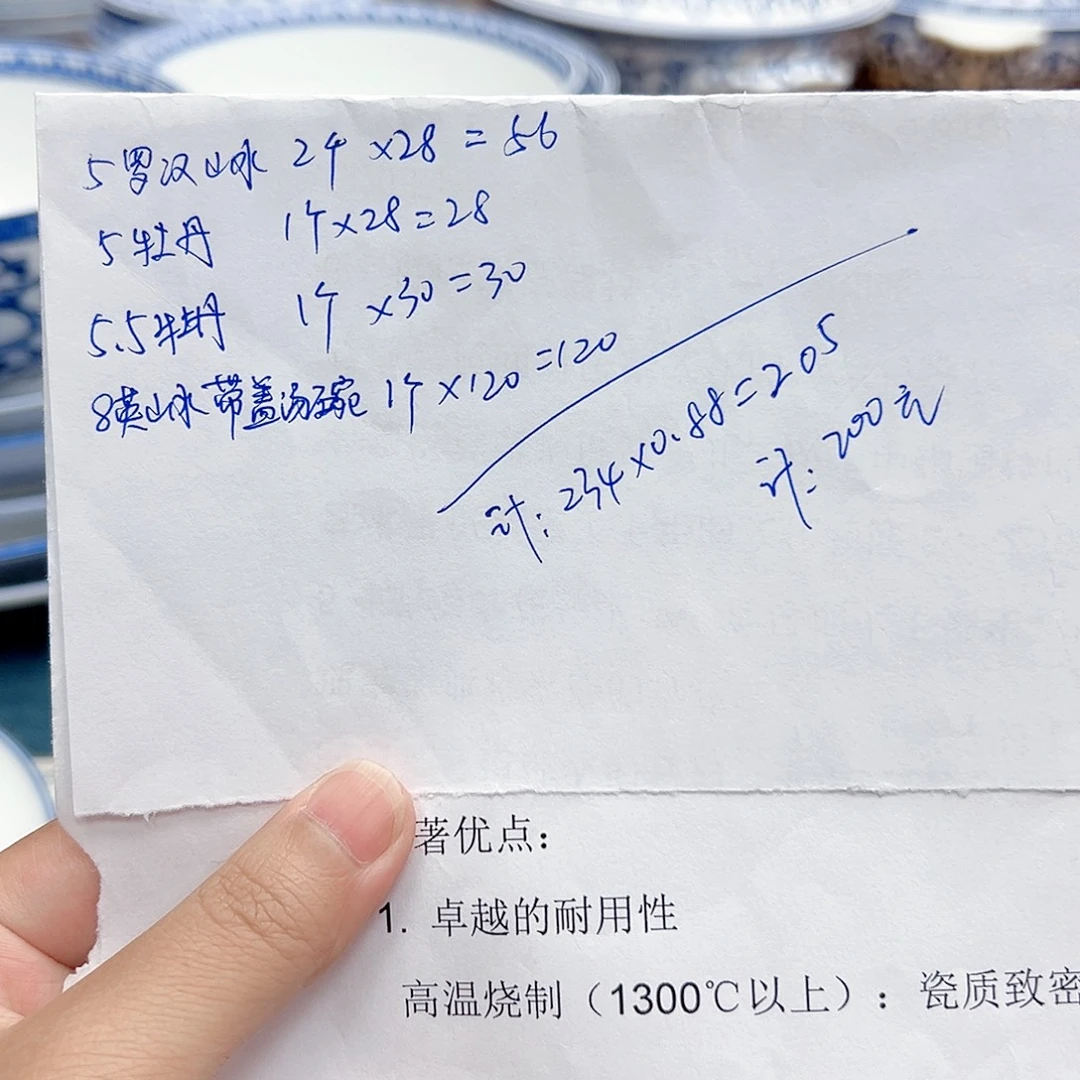 5罗汉山水 2个 ×28 = 56
5牡丹 1个×28=28
5.5牡丹 1个 ×30=30
8英山水带盖汤碗 1个×120=120
计: 234×0.88=205
计: 200元
著优点：
1. 卓越的耐用性
高温烧制（1300℃以上）：瓷质致密